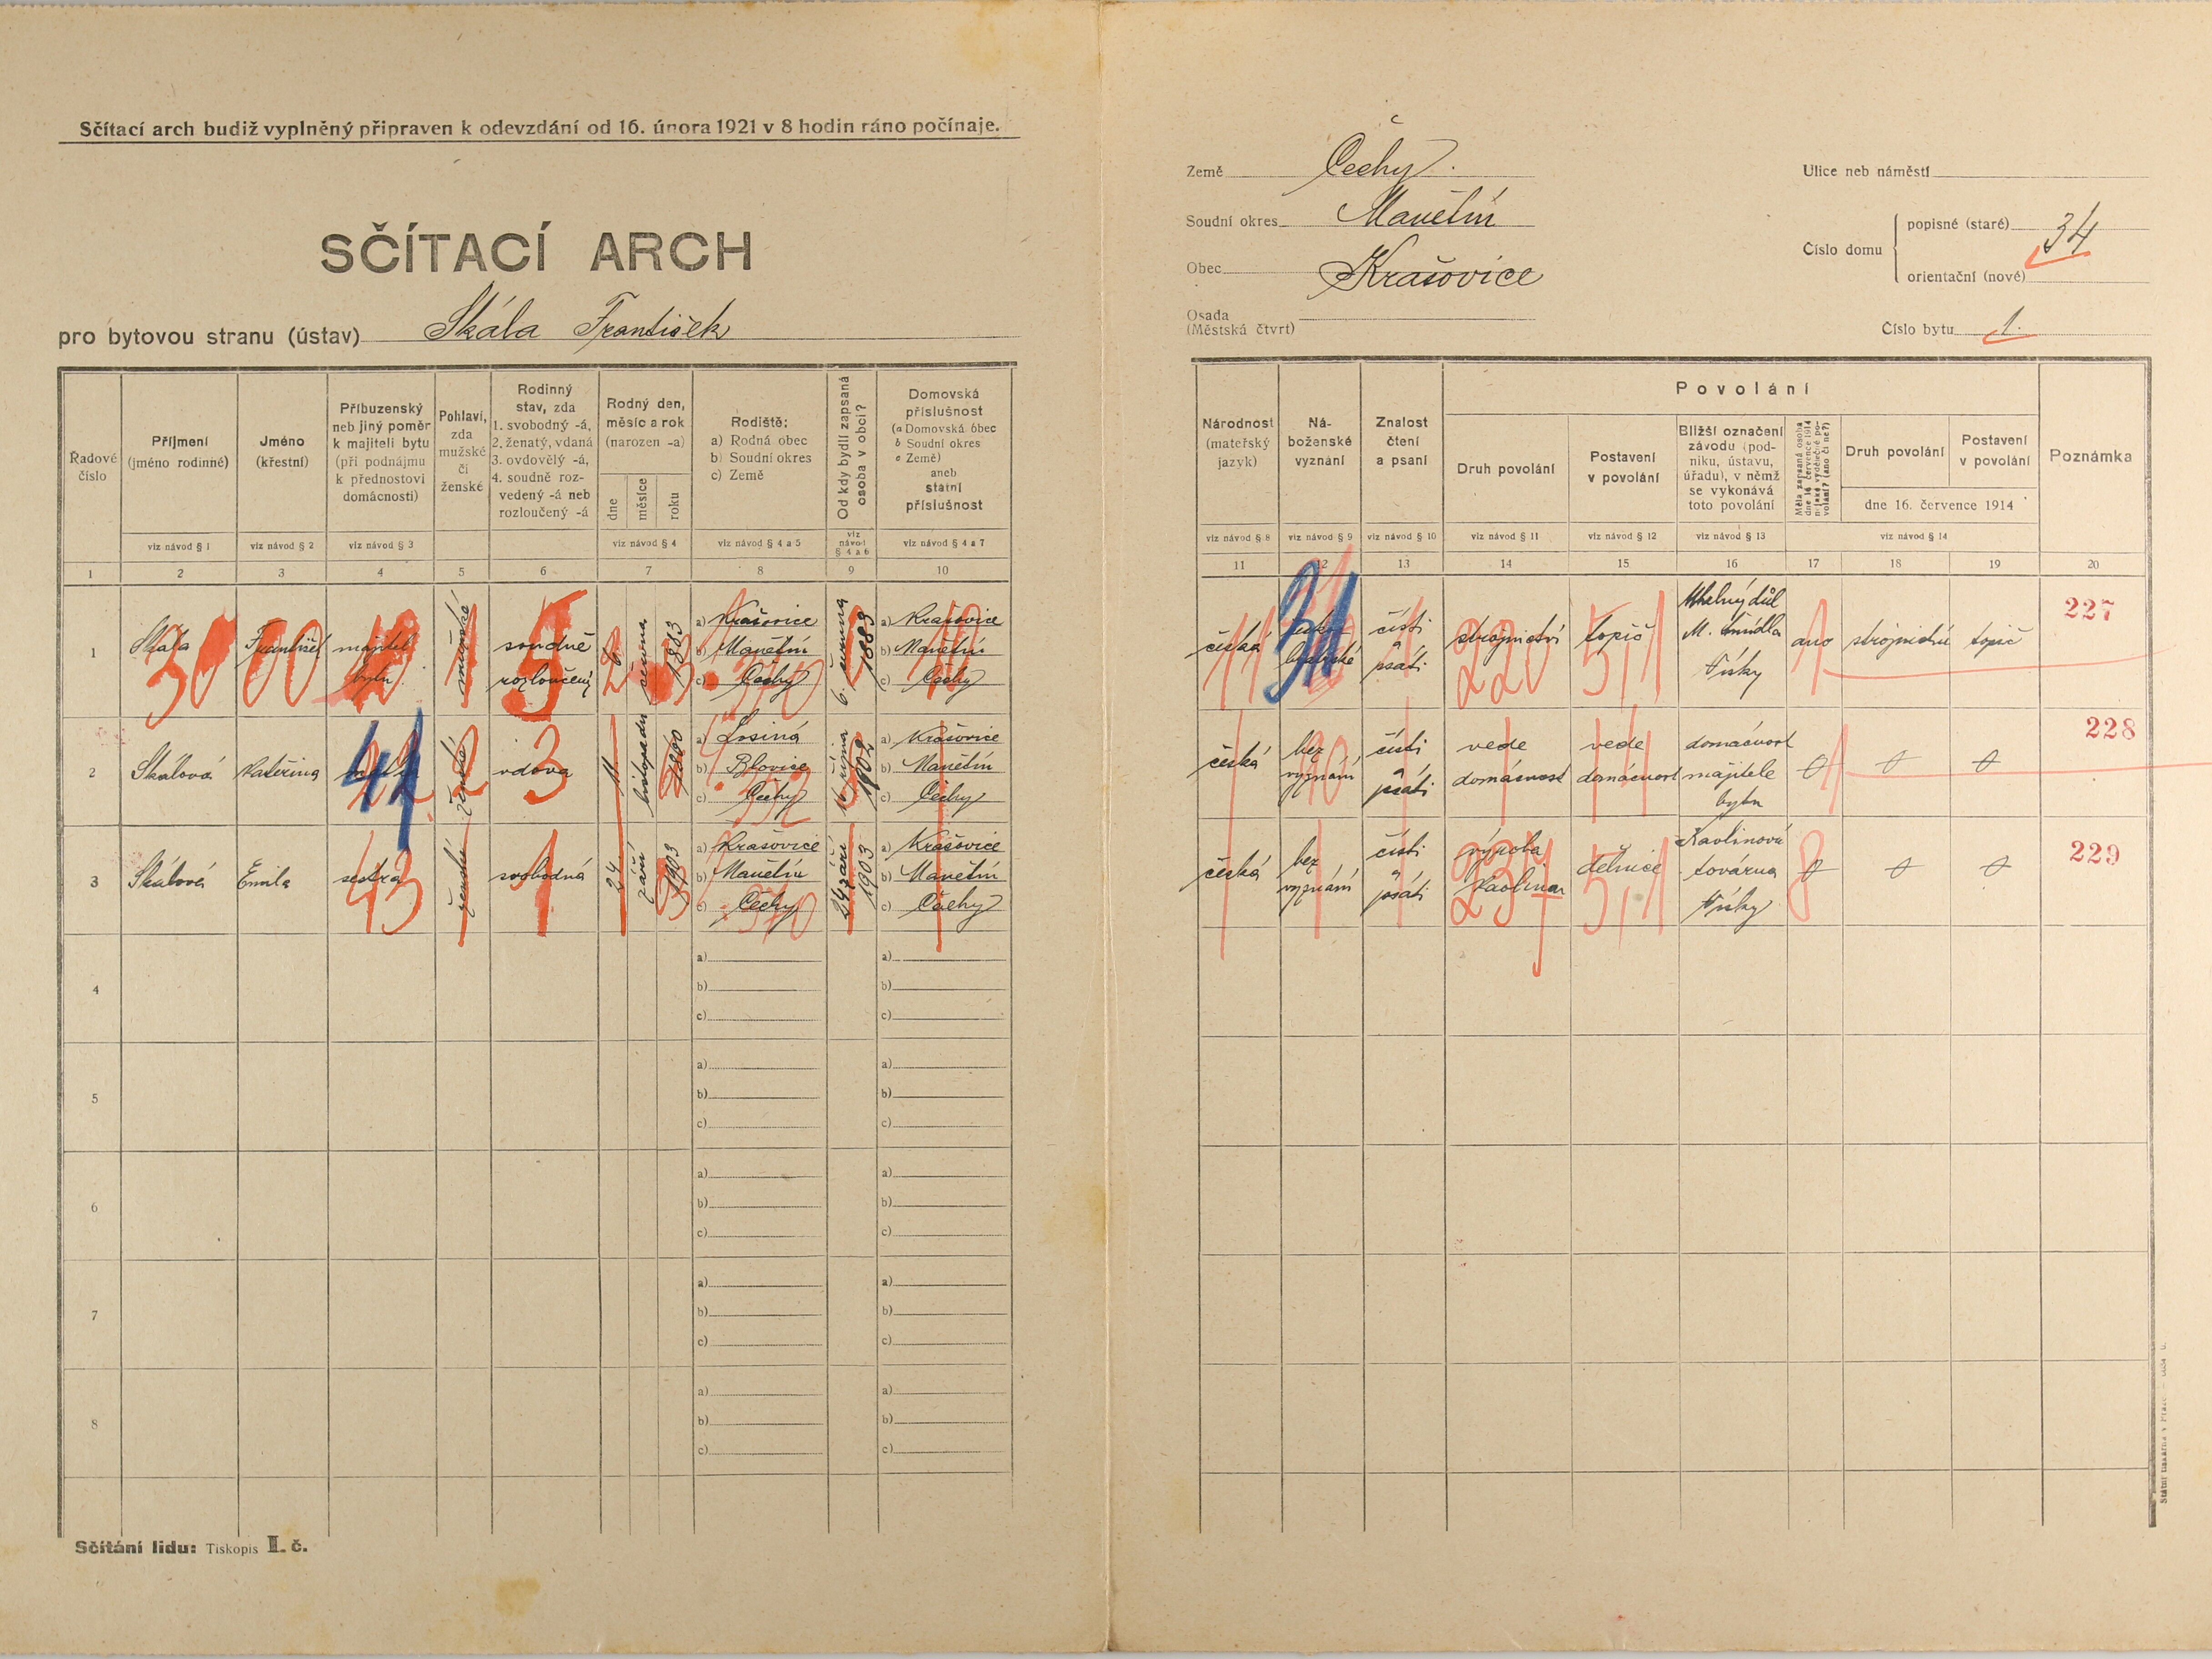 Sčítací arch budiž vyplněný připraven k odevzdání od 16. února 1921 v 8 hodin ráno počínaje.
SČÍTACÍ ARCH
pro bytovou stranu (ústav) Skála František
Země Čechy
Soudní okres Manětín
Obec Krašovice
Osada
(Městská čtvrt)
Ulice neb náměstí
Číslo domu
popisné (staré) 34
orientační (nové)
Číslo bytu 1.
Řadové číslo
Příjmení (jméno rodinné)
Jméno (křestní)
Příbuzenský neb jiný poměr k majiteli bytu (při podnájmu k přednostovi domácnosti)
Pohlaví, zda mužské či ženské
Rodinný stav, zda 1. svobodný -á, 2. ženatý, vdaná 3. ovdovělý -á, 4. soudně rozvedený -á neb rozloučený -á
Rodný den, měsíc a rok (narozen -a)
dne měsíce roku
Rodiště:
a) Rodná obec
b) Soudní okres
c) Země
Od kdy bydlí zapsaná osoba v obci?
Domovská příslušnost
(a Domovská obec
b Soudní okres
c Země)
aneb
státní příslušnost
Národnost (mateřský jazyk)
Náboženské vyznání
Znalost čtení a psaní
Povolání
Druh povolání
Postavení v povolání
Bližší označení závodu (podniku, ústavu, úřadu), v němž se vykonává toto povolání
Měla zapsaná osoba dne 16. července 1914 nějaké výdělečné povolání? (ano či ne?)
Druh povolání
Postavení v povolání
dne 16. července 1914
Poznámka
viz návod § 1 viz návod § 2 viz návod § 3 viz návod § 4 viz návod § 4 a 5 viz návod § 4 a 6 viz návod § 4 a 7
viz návod § 8 viz návod § 9 viz návod § 10 viz návod § 11 viz návod § 12 viz návod § 13 viz návod § 14
1 2 3 4 5 6 7 8 9 10
11 12 13 14 15 16 17 18 19 20
1 Skála František majitel bytu mužské soudně rozloučený 6. června 1883
a) Krašovice
b) Manětín
c) Čechy
6. června 1883
a) Krašovice
b) Manětín
c) Čechy
česká česko bratrské čísti a psáti strojnictví topič Uhelný důl M. Šmídla Tísky ano strojnictví topič 227
2 Skálová Kateřina matka ženské vdova 11 listopadu 1860
a) Losiná
b) Blovice
c) Čechy
října 1902
a) Krašovice
b) Manětín
c) Čechy
česká bez vyznání čísti a psáti vede domácnost vede domácnost domácnost majitele bytu 0 0 0 228
3 Skálová Emila sestra ženské svobodná 24 září 1903
a) Krašovice
b) Manětín
c) Čechy
24 září 1903
a) Krašovice
b) Manětín
c) Čechy
česká bez vyznání čísti a psáti výroba kaolinu dělnice Kaolinová továrna Tísky 0 0 0 229
4 a) b) c) a) b) c)
5 a) b) c) a) b) c)
6 a) b) c) a) b) c)
7 a) b) c) a) b) c)
8 a) b) c) a) b) c)
Sčítání lidu: Tiskopis I. č.